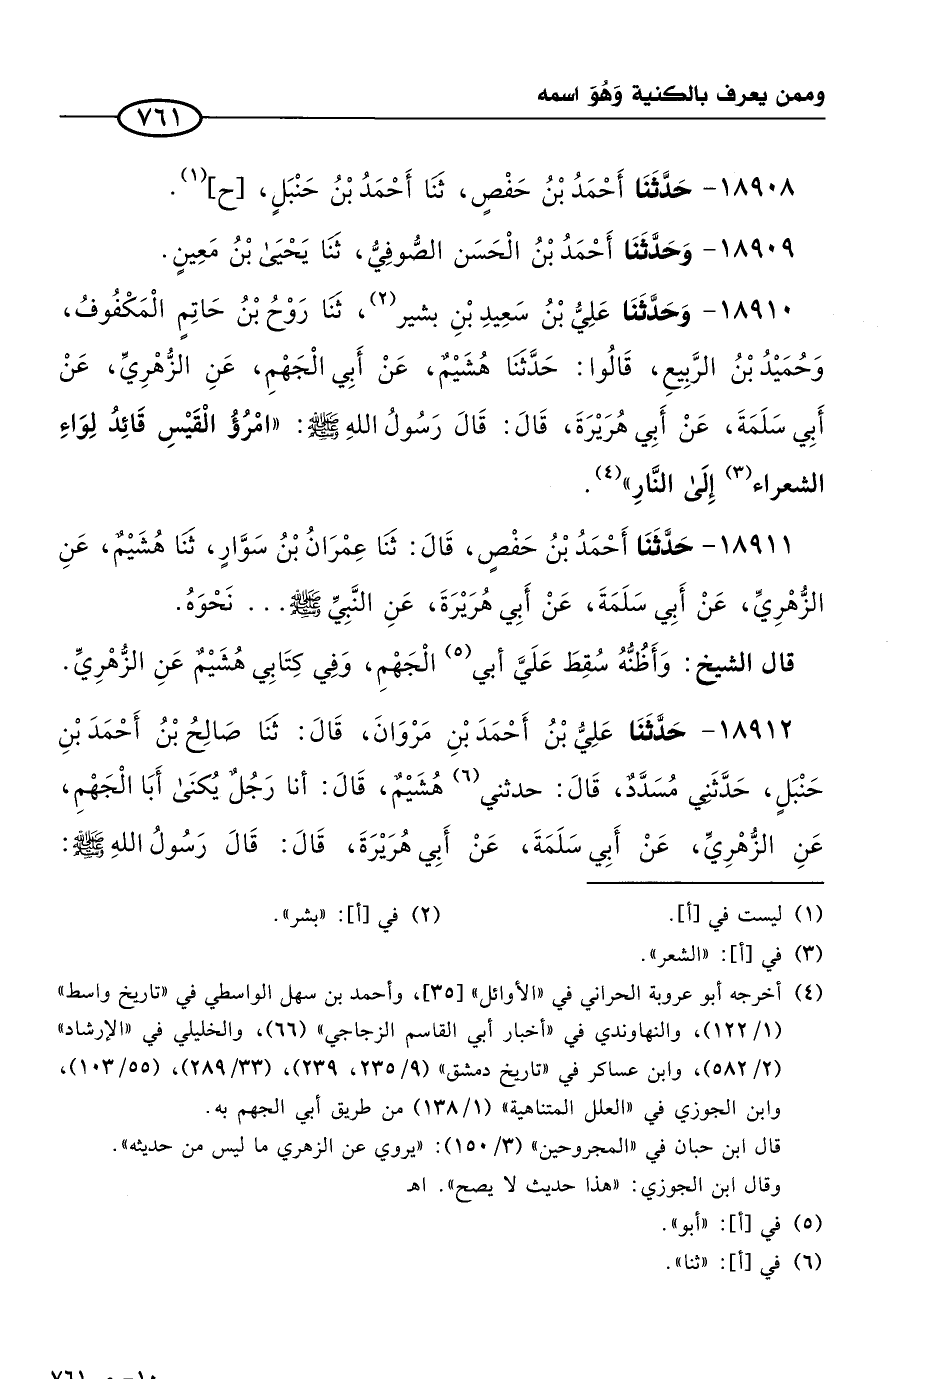 وممن يعرف بالكنية وَهُوَ اسمه
٧٦١
١٨٩٠٨- حَدَّثَنَا أَحْمَدُ بْنُ حَفْصٍ، ثَنَا أَحْمَدُ بْنُ حَنْبَلٍ، [ح](١).
١٨٩٠٩- وَحَدَّثَنَا أَحْمَدُ بْنُ الْحَسَن الصُّوفِيُّ، ثَنَا يَحْيَىٰ بْنُ مَعِينٍ.
١٨٩١٠- وَحَدَّثَنَا عَلِيُّ بْنُ سَعِيدِ بْنِ بشير(٢)، ثَنَا رَوْحُ بْنُ حَاتِمٍ الْمَكْفُوفُ،
وَحُمَيْدُ بْنُ الرَّبِيعِ، قَالُوا: حَدَّثَنَا هُشَيْمٌ، عَنْ أَبِي الْجَهْمِ، عَنِ الزُّهْرِيِّ، عَنْ
أَبِي سَلَمَةَ، عَنْ أَبِي هُرَيْرَةَ، قَالَ: قَالَ رَسُولُ اللهِ ﷺ: «امْرُؤُ الْقَيْسِ قَائِدُ لِوَاءِ
الشعراء(٣) إِلَىٰ النَّارِ»(٤).
١٨٩١١- حَدَّثَنَا أَحْمَدُ بْنُ حَفْصٍ، قَالَ: ثَنَا عِمْرَانُ بْنُ سَوَّارٍ، ثَنَا هُشَيْمٌ، عَنِ
الزُّهْرِيِّ، عَنْ أَبِي سَلَمَةَ، عَنْ أَبِي هُرَيْرَةَ، عَنِ النَّبِيِّ ﷺ... نَحْوَهُ.
قال الشيخ: وَأَظُنُّهُ سُقِطَ عَلَيَّ أبي(٥) الْجَهْمِ، وَفِي كِتَابِي هُشَيْمٌ عَنِ الزُّهْرِيِّ.
١٨٩١٢- حَدَّثَنَا عَلِيُّ بْنُ أَحْمَدَ بْنِ مَرْوَانَ، قَالَ: ثَنَا صَالِحُ بْنُ أَحْمَدَ بْنِ
حَنْبَلٍ، حَدَّثَنِي مُسَدَّدٌ، قَالَ: حدثني(٦) هُشَيْمٌ، قَالَ: أنا رَجُلٌ يُكنَىٰ أَبَا الْجَهْمِ،
عَنِ الزُّهْرِيِّ، عَنْ أَبِي سَلَمَةَ، عَنْ أَبِي هُرَيْرَةَ، قَالَ: قَالَ رَسُولُ اللهِ ﷺ:
(١) ليست في [أ]. (٢) في [أ]: «بشر».
(٣) في [أ]: «الشعر».
(٤) أخرجه أبو عروبة الحراني في «الأوائل» [٣٥]، وأحمد بن سهل الواسطي في «تاريخ واسط»
(١/ ١٢٢)، والنهاوندي في «أخبار أبي القاسم الزجاجي» (٦٦)، والخليلي في «الإرشاد»
(٢/ ٥٨٢)، وابن عساكر في «تاريخ دمشق» (٩/ ٢٣٥، ٢٣٩)، (٣٣/ ٢٨٩)، (٥٥/ ١٠٣)،
وابن الجوزي في «العلل المتناهية» (١/ ١٣٨) من طريق أبي الجهم به.
قال ابن حبان في «المجروحين» (٣/ ١٥٠): «يروي عن الزهري ما ليس من حديثه».
وقال ابن الجوزي: «هذا حديث لا يصح». اهـ
(٥) في [أ]: «أبو».
(٦) في [أ]: «ثنا».